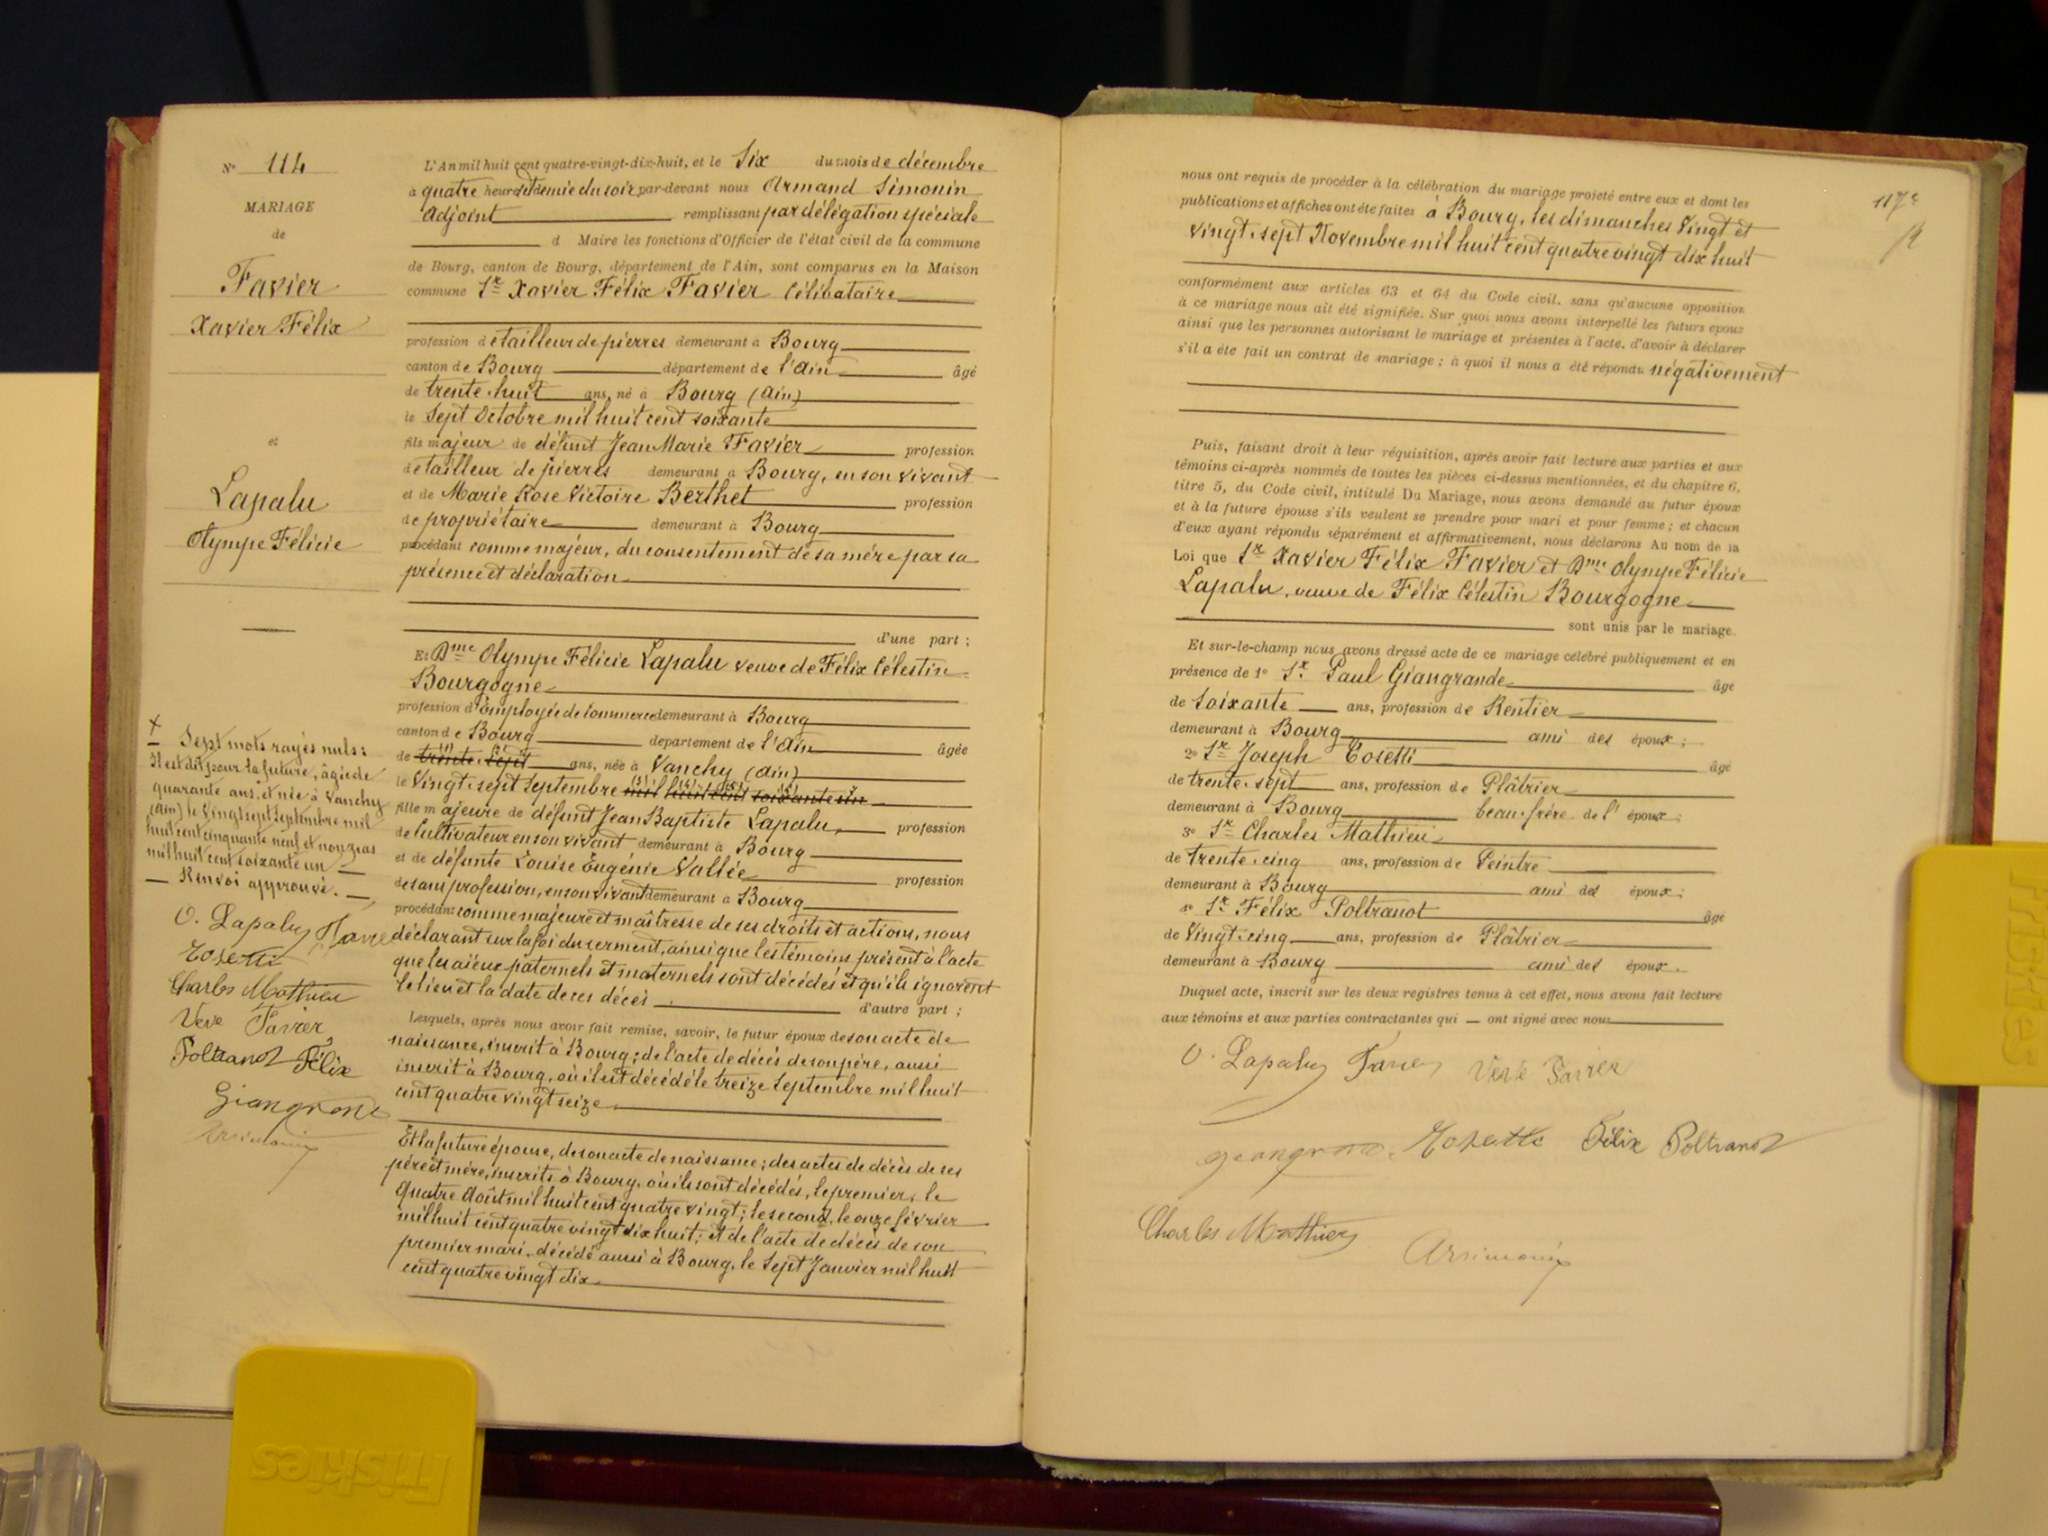 Nº 114
MARIAGE
de
Favier
Xavier Félix
et
Lapalu
Olympe Félicie
L'An mil huit cent quatre-vingt-dix-huit, et le Six du mois de décembre
à quatre heures et demie du soir, par-devant nous Armand Simonin
Adjoint remplissant par délégation spéciale
d Maire les fonctions d'Officier de l'état civil de la commune
de Bourg, canton de Bourg, département de l'Ain, sont comparus en la Maison
commune Sr Xavier Félix Favier Célibataire
profession de tailleur de pierres demeurant à Bourg
canton de Bourg département de l'Ain âgé
de trente-huit ans, né à Bourg (Ain)
le Sept Octobre mil huit cent soixante
fils majeur de défunt Jean Marie Favier profession
de tailleur de pierres demeurant à Bourg, en son vivant
et de Marie Rose Victoire Berthet profession
de propriétaire demeurant à Bourg
procédant comme majeur, du consentement de sa mère par sa
présence et déclaration
d'une part ;
Et Dme Olympe Félicie Lapalu veuve de Félix Célestin
Bourgogne
profession d'employée de commerce demeurant à Bourg
canton de Bourg département de l'Ain âgée
de trente-sept ans, née à Vanchy (Ain)
le Vingt-sept Septembre mil huit cent soixante un
fille majeure de défunt Jean Baptiste Lapalu, profession
de Cultivateur en son vivant demeurant à Bourg
et de défunte Louise Eugénie Vallée profession
de sans profession, en son vivant demeurant à Bourg
procédant comme majeure et maîtresse de ses droits et actions, nous
déclarant sur la foi du serment, ainsi que les témoins présent à l'acte
que les aïeux paternels et maternels sont décédés et qu'ils ignorent
le lieu et la date de ces décès d'autre part ;
Lesquels, après nous avoir fait remise, savoir, le futur époux de son acte de
naissance, inscrit à Bourg ; de l'acte de décès de son père, aussi
inscrit à Bourg, où il est décédé le treize Septembre mil huit
cent quatre vingt seize
Et la future épouse, de son acte de naissance ; des actes de décès de ses
père et mère, inscrits à Bourg, où ils sont décédés, le premier, le
Quatre Août mil huit cent quatre vingt ; le second, le onze février
mil huit cent quatre vingt dix huit ; et de l'acte de décès de son
premier mari, décédé aussi à Bourg, le Sept Janvier mil huit
cent quatre vingt dix
+ Sept mots rayés nuls :
Il est dit pour la future, âgée de
quarante ans, et née à Vanchy
(Ain) le Vingt sept Septembre mil
huit cent cinquante neuf et non pas
mil huit cent soixante un
Renvoi approuvé.
O. Lapalu Favier
Tosetti
Charles Mathieu
Veve Favier
Poltranot Félix
Giangrande
Arsimonin
117e
nous ont requis de procéder à la célébration du mariage projeté entre eux et dont les
publications et affiches ont été faites à Bourg, les dimanches Vingt et
vingt-sept Novembre mil huit cent quatre vingt dix huit
conformément aux articles 63 et 64 du Code civil, sans qu'aucune opposition
à ce mariage nous ait été signifiée. Sur quoi nous avons interpellé les futurs époux
ainsi que les personnes autorisant le mariage et présentes à l'acte, d'avoir à déclarer
s'il a été fait un contrat de mariage ; à quoi il nous a été répondu négativement
Puis, faisant droit à leur réquisition, après avoir fait lecture aux parties et aux
témoins ci-après nommés de toutes les pièces ci-dessus mentionnées, et du chapitre 6,
titre 5, du Code civil, intitulé Du Mariage, nous avons demandé au futur époux
et à la future épouse s'ils veulent se prendre pour mari et pour femme ; et chacun
d'eux ayant répondu séparément et affirmativement, nous déclarons Au nom de la
Loi que Sr Xavier Félix Favier et Dme Olympe Félicie
Lapalu, veuve de Félix Célestin Bourgogne
sont unis par le mariage.
Et sur-le-champ nous avons dressé acte de ce mariage célébré publiquement et en
présence de 1º Sr Paul Giangrande âgé
de Soixante ans, profession de Rentier
demeurant à Bourg ami des époux ;
2º Sr Joseph Tosetti âgé
de trente-sept ans, profession de Plâtrier
demeurant à Bourg beau-frère de l'époux ;
3º Sr Charles Mathieu
de trente-cinq ans, profession de Peintre
demeurant à Bourg ami des époux ;
4º Sr Félix Poltranot âgé
de Vingt-cinq ans, profession de Plâtrier
demeurant à Bourg ami des époux.
Duquel acte, inscrit sur les deux registres tenus à cet effet, nous avons fait lecture
aux témoins et aux parties contractantes qui ont signé avec nous
O. Lapalu Favier Veve Favier
Giangrande Tosetti Félix Poltranot
Charles Mathieu Arsimonin
Friskies
Friskies